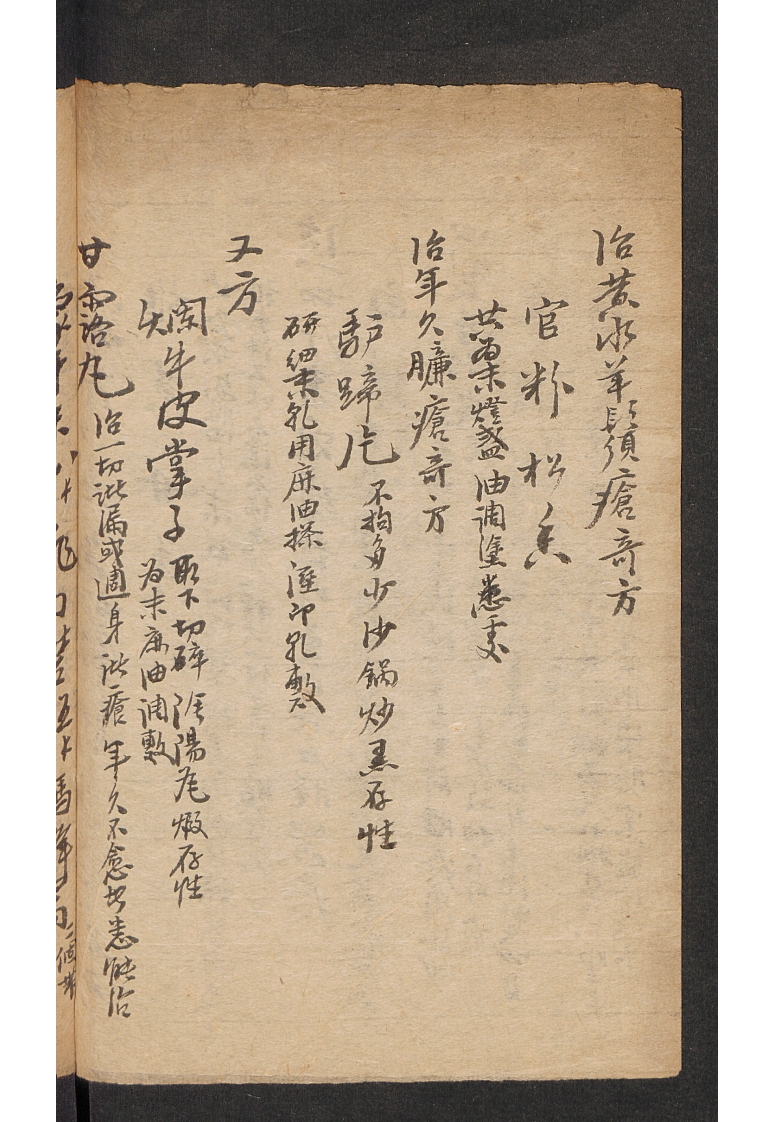 治黄水羊鬍須瘡奇方
官粉 松香
共為末燈盞油調塗患處
治年久臁瘡奇方
馿蹄片 不拘多少沙鍋炒黑存性
研細末乳用麻油搽湿即乾敷
又方
闖牛皮掌子 取下切碎 陽瓦煅存性
為末麻油調敷
甘露丸 治一切疵漏或週身疵瘡年久不愈者悉能治